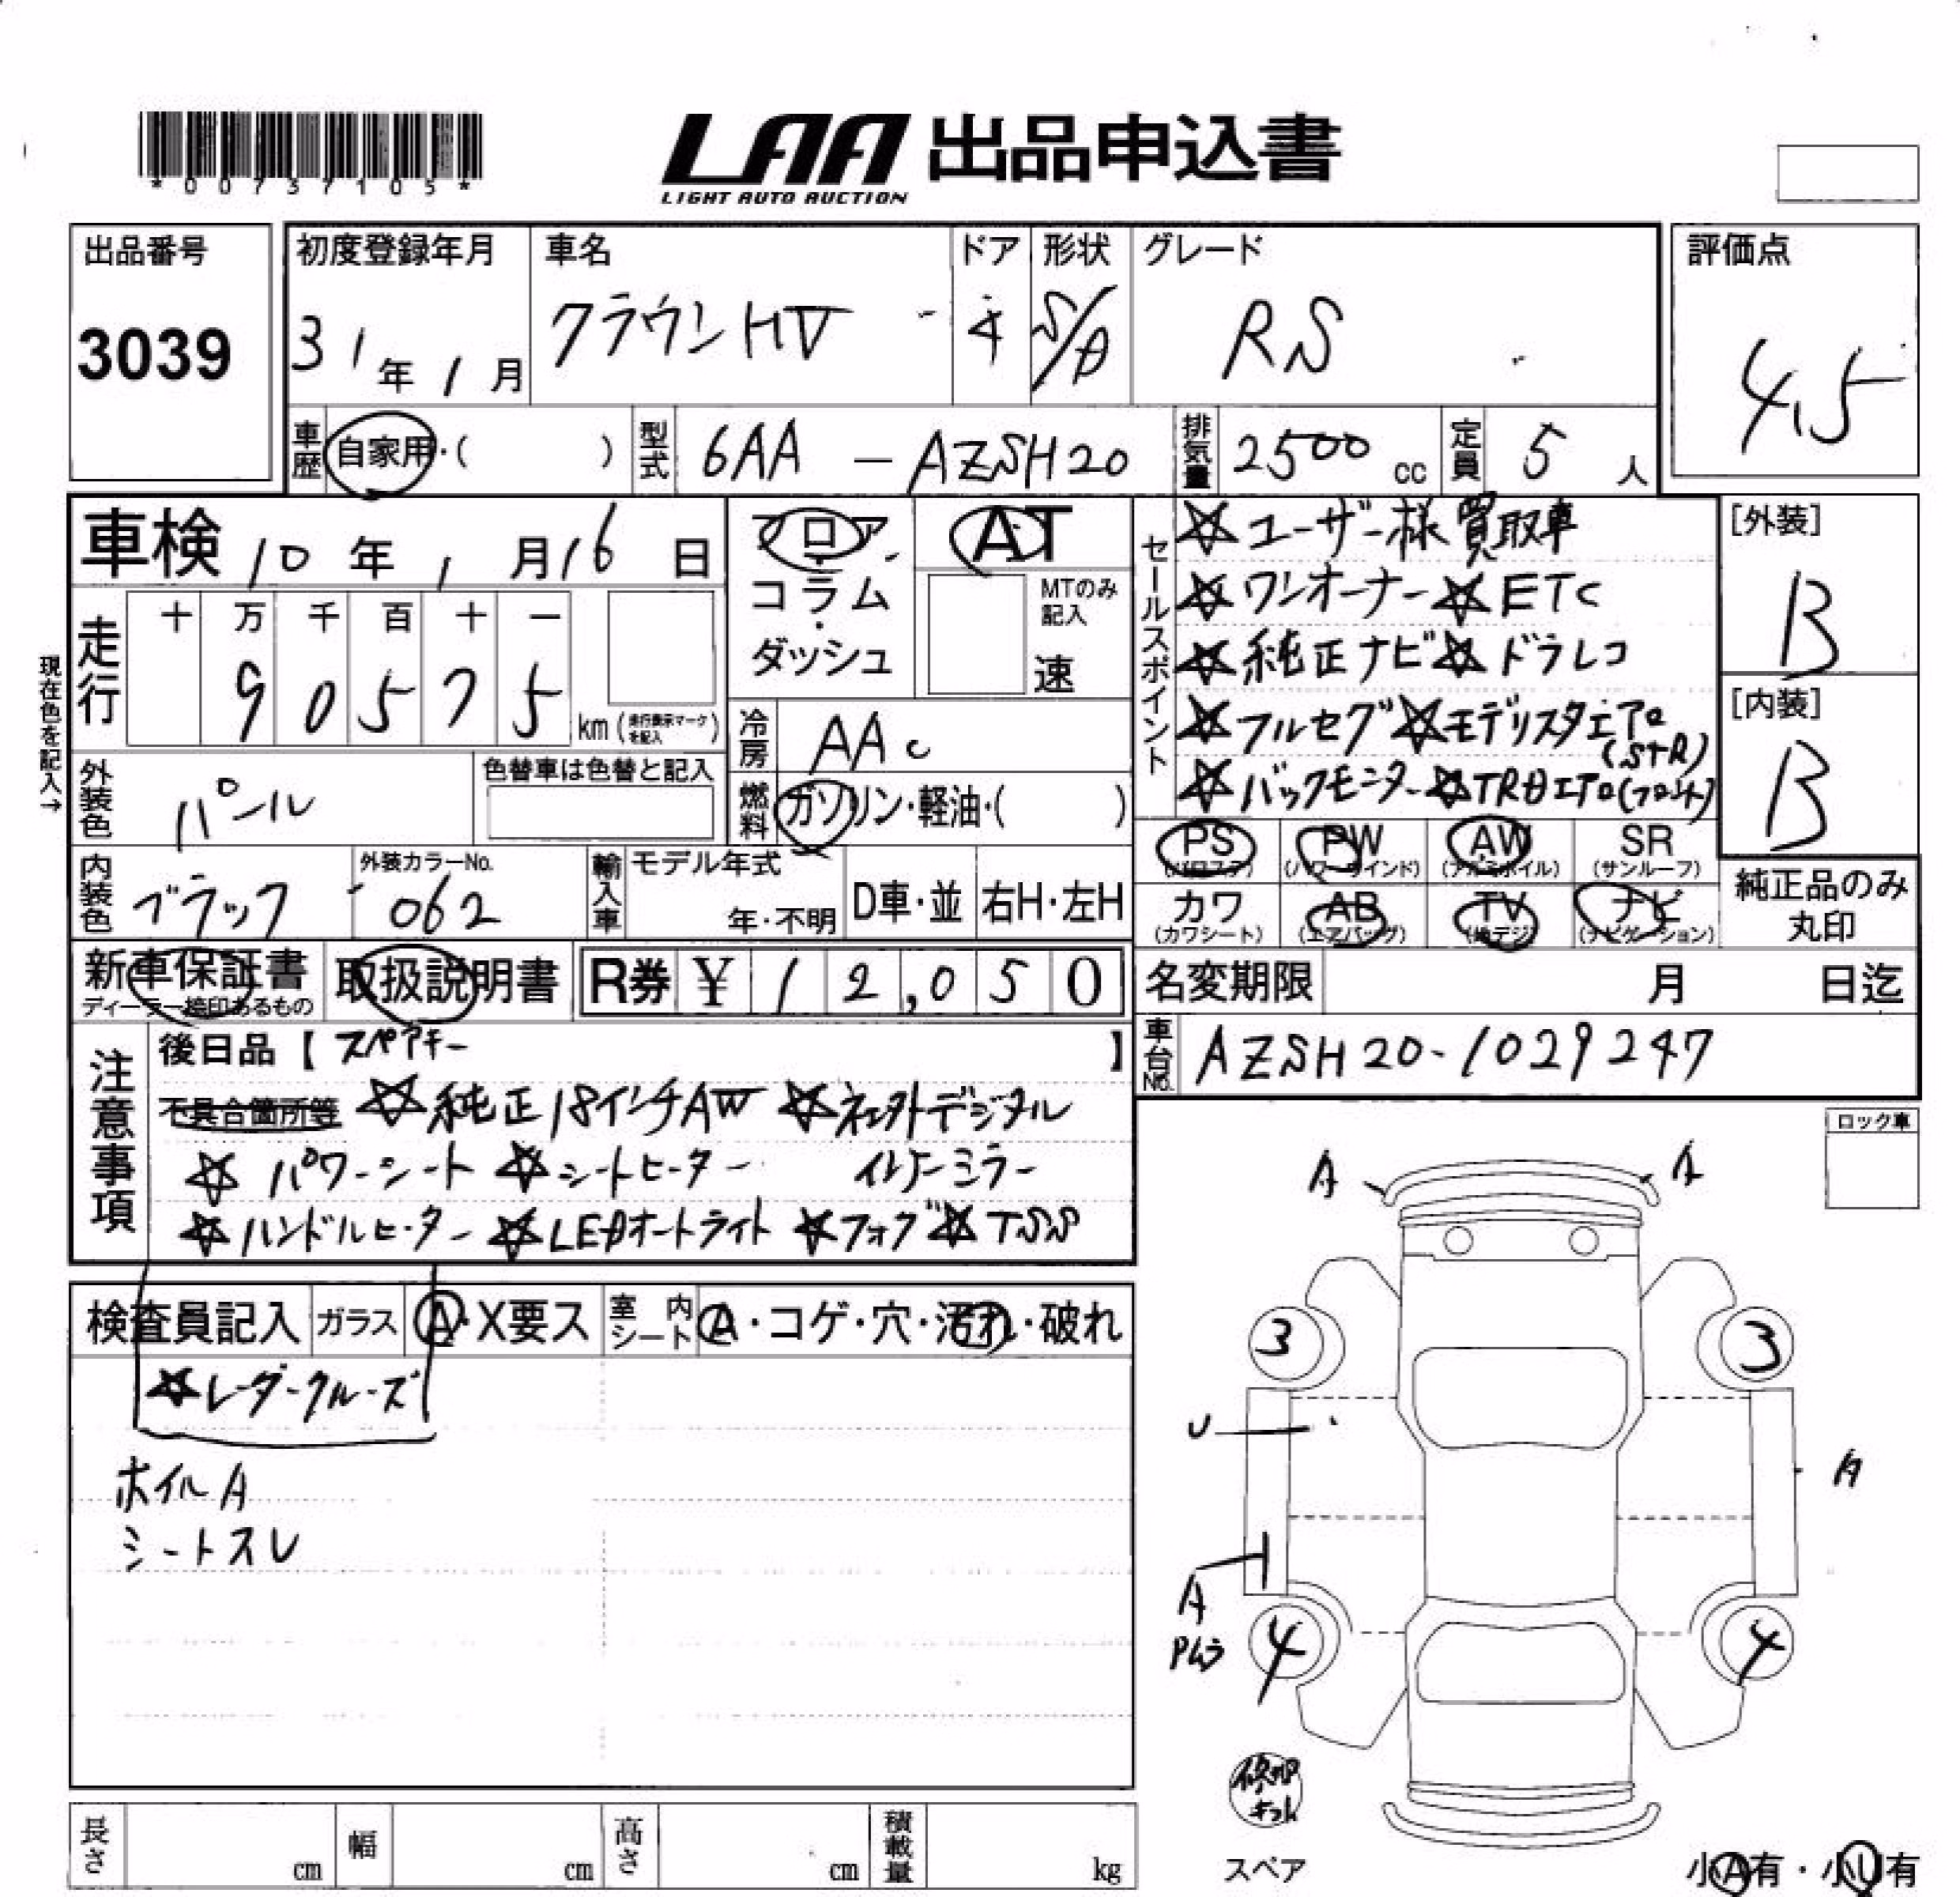 *00737105*
LAA 出品申込書
LIGHT AUTO AUCTION
出品番号
3039
初度登録年月
31年1月
車名
クラウンHV
ドア
4
形状
S/D
グレード
RS
評価点
4.5
車歴
自家用・( )
型式
6AA-AZSH20
排気量
2500cc
定員
5人
車検 10年1月16日
フロア・コラム・ダッシュ
AT
MTのみ記入
速
現在色を記入→
走行
十 万 千 百 十 一
90575
km(走行表示マークを記入)
冷房
AAC
外装色
パール
色替車は色替と記入
燃料
ガソリン・軽油・( )
内装色
ブラック
外装カラーNo.
062
輸入車
モデル年式
年・不明
D車・並
右H・左H
セールスポイント
☆ユーザー様買取車
☆ワンオーナー☆ETC
☆純正ナビ☆ドラレコ
☆フルセグ☆モデリスタエアロ
(S+R)
☆バックモニター☆TRDエアロ(フロント)
[外装]
B
[内装]
B
PS PW AW SR
(パワステ) (パワーウインド) (アルミホイル) (サンルーフ)
カワ AB TV ナビ
(カワシート) (エアバッグ) (地デジ) (ナビゲーション)
純正品のみ
丸印
新車保証書
ディーラー捺印あるもの
取扱説明書
R券 ¥12,050
名変期限 月 日迄
車台No.
AZSH20-1029247
注意事項
後日品【スペアキー 】
不具合箇所等 ☆純正18インチAW ☆ネクストデジタル
☆パワーシート ☆シートヒーター インナーミラー
☆ハンドルヒーター ☆LEDオートライト ☆フォグ☆TSS
検査員記入 ガラス A・X要ス 室内シート A・コゲ・穴・汚れ・破れ
☆レーダークルーズ
ホイルA
シートスレ
ロック車
A A
3 3
U
A
A
Pムラ
4 4
修理キット
スペア
長さ cm 幅 cm 高さ cm 積載量 kg
小A有・小U有